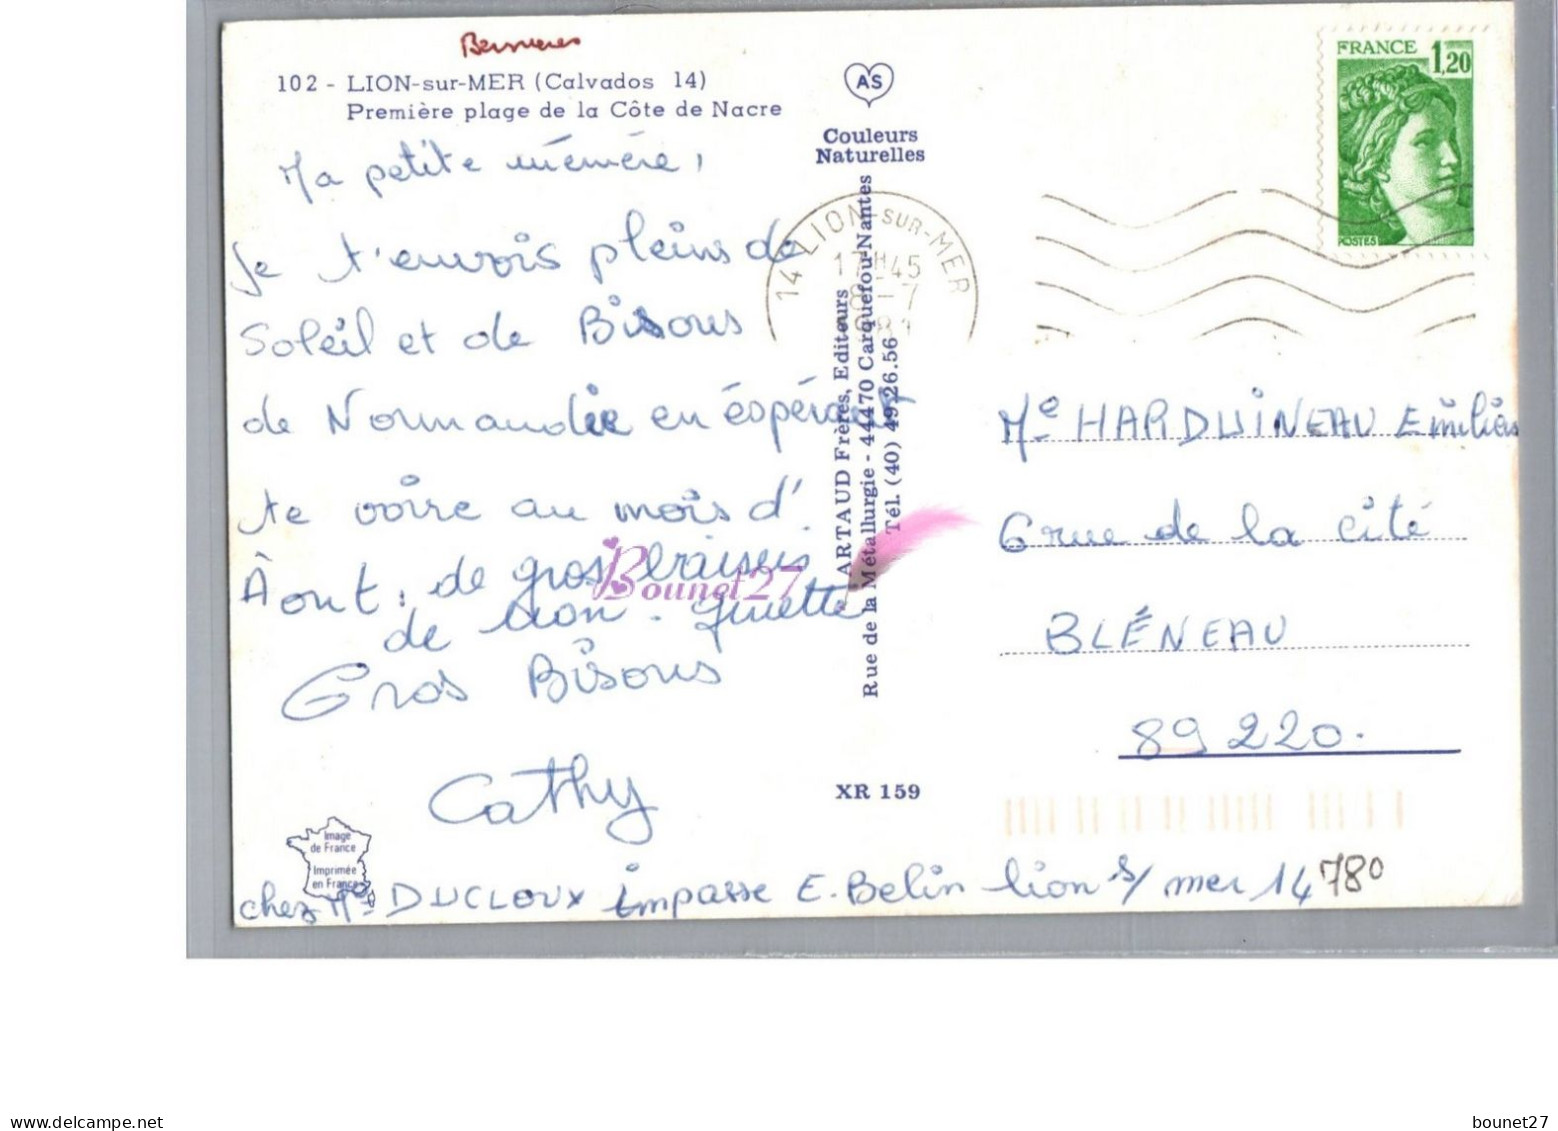 Bernieres
102 - LION-sur-MER (Calvados 14)
Première plage de la Côte de Nacre
Ma petite mémère,
Je t'envois pleins de
Soleil et de Bisous
de Normandie en éspérant
te voire au mois d'
Âout, de gros baisers
de Lion. Ginette
Gros Bisous
Cathy
Image
de France
Imprimée
en France
chez Me DUCLOUX impasse E. Belin Lion s/ mer 14780
AS
Couleurs
Naturelles
ARTAUD Frères, Editeurs
Rue de la Métallurgie - 44470 Carquefou-Nantes
Tél. (40) 49.26.56
XR 159
14 LION-SUR-MER
17H45
8-7
FRANCE 1,20
POSTES
Me HARDUINEAU
6 rue de la cité
BLÉNEAU
89220.
Bounet27
bounet27